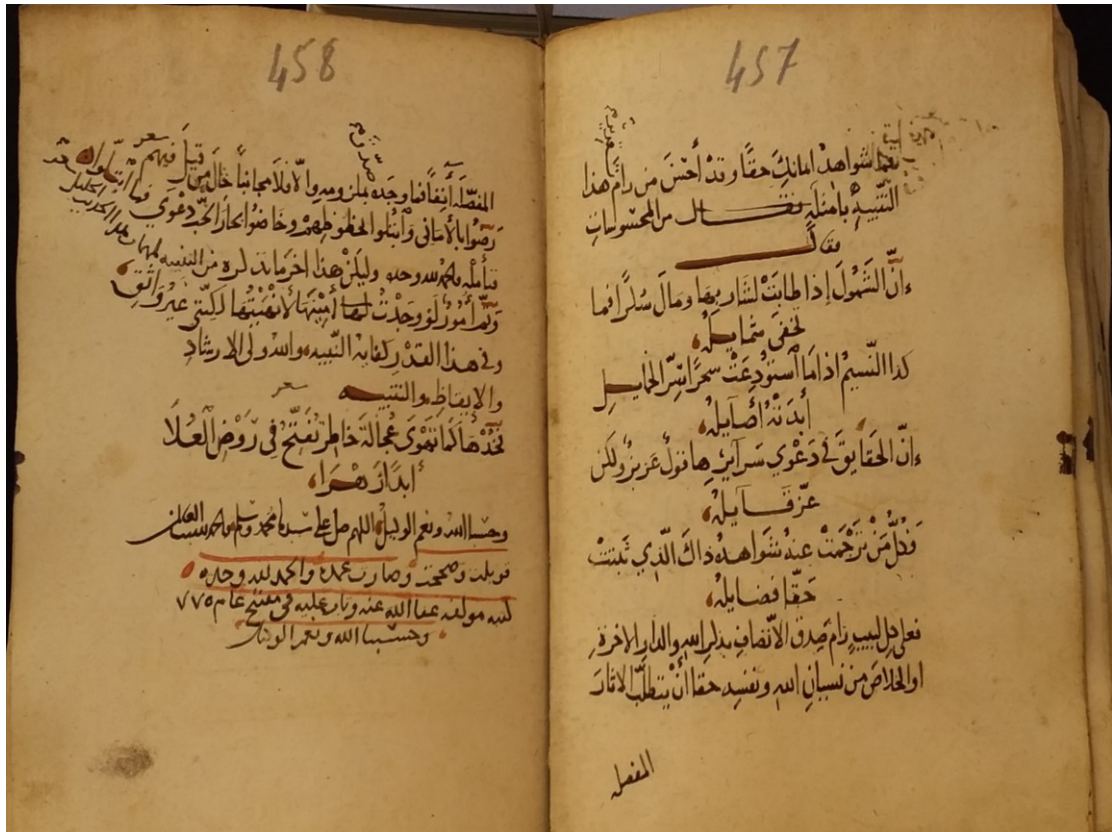 457
شواهد امانك حقا وقد أحسن من رام هذا
التنبيه بأمثلة من المحسوسات
فقال
إنّ الشمول إذا طابت لشاربها ومال سكرا فما
تخفى شمايله
كذا النسيم اذا ما استودعت سحرا سر الخمايل
أبدته أصايله
إنّ الحقايق في دعوى سرآيرها قول عزيز ولكن
عز قآيله
وكل من ترجمت عنه شواهده ذاك الذي ثبتت
حقا فضايله
فعلى كل لبيب رام صدق الانصاف بذكر الله والدار الاخرة
او الخلاص من نسيان الله ونفسه حقا أن يتطلب الاثار
المفصل
458
المفصلة أنفا فما وجده ملزومه والا فلا مجانبا حال من قيل فيهم
رضوا بالأماني وابتلوا بحظوظهم وخاضوا بحار الحب دعوى فما ابتلوا
فتأمله والحمد لله وحده وليكن هذا اخر ما نذكره من التنبيه
وثم أمور لو وجدت لها لكنني غير واثق
وفي هذا القدر كفاية التنبيه والله ولى الارشاد
والإيقاظ والتنبيه
شعر
فخذها كما تهوى عجالة خاطر تفتح في روض العلا
أبدا زهرا
وحسبنا الله ونعم الوكيل اللهم صل على سيدنا محمد وسلم والحمد لله
قوبلت وصححت وصارت عمدة والحمد لله وحده
كتبه مولفه عفا الله عنه وتاب عليه في مفتتح عام ٧٧٥
وحسبنا الله ونعم الوكيل